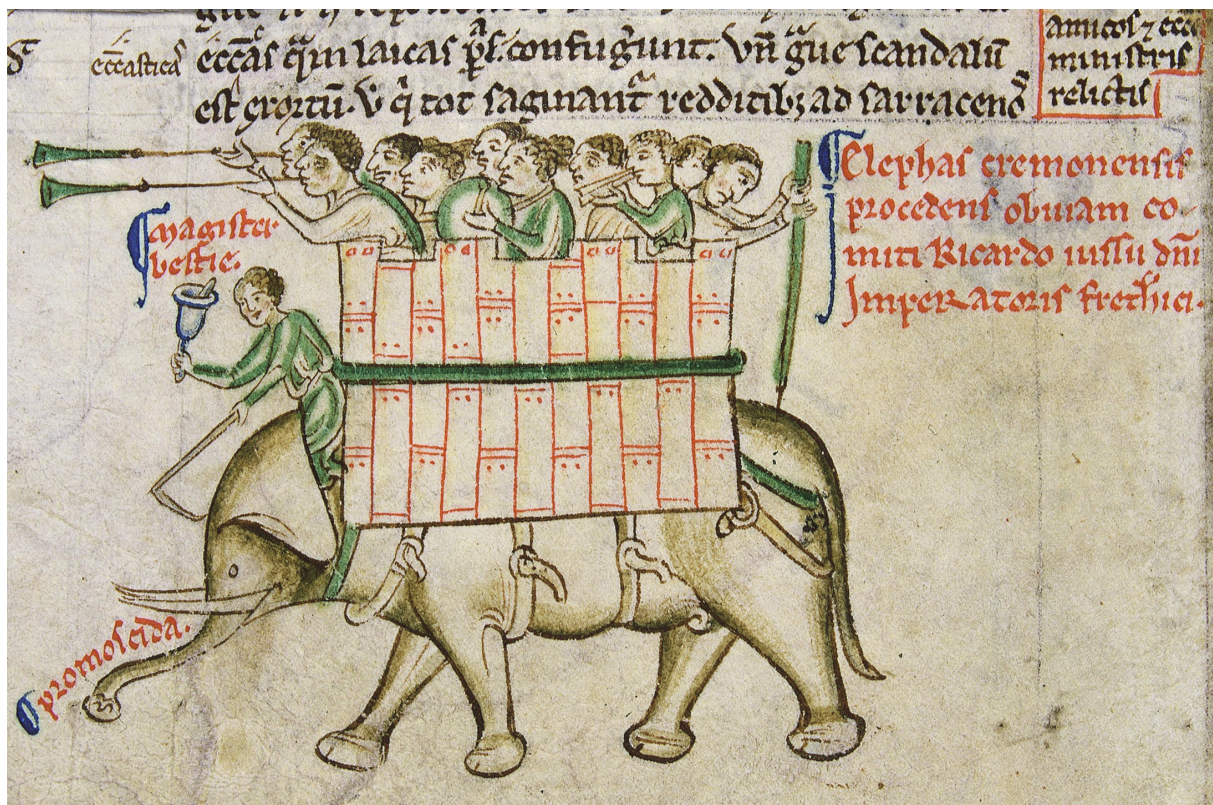 eccastica
eccas qm laicas ps. confugiunt. Vn que scandalu
est exortu. V qi tot saginant redditib; ad sarracenos
amicos ⁊ ecce
ministris
relictis
magister
bestie.
Elephas cremonensis
procedens obuiam co-
miti Ricardo iussu dni
Imperatoris frethici.
promoscida.